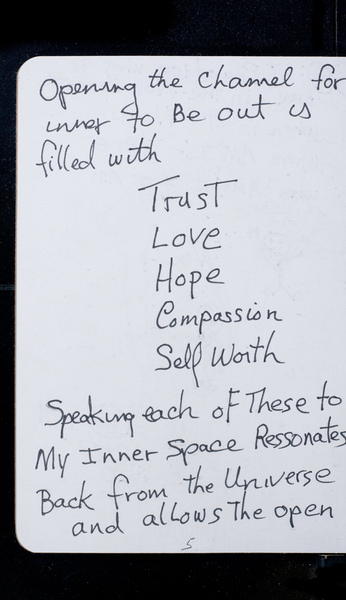 Opening the Channel for
inner to Be out is
filled with
Trust
Love
Hope
Compassion
Self Worth
Speaking each of These to
My Inner Space Ressonates
Back from the Universe
and allows The open
5